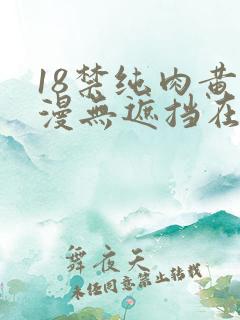 18禁纯肉黄
漫無遮挡在
舞夜天
未经同意禁止转载